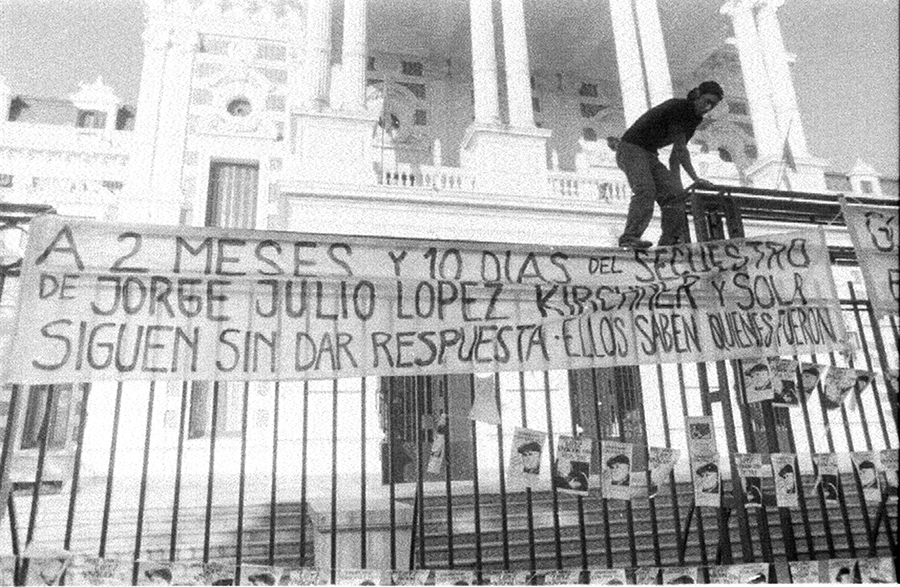 A 2 MESES Y 10 DIAS DEL SECUESTRO
DE JORGE JULIO LOPEZ KIRCHNER Y SOLA
SIGUEN SIN DAR RESPUESTA · ELLOS SABEN QUIENES FUERON